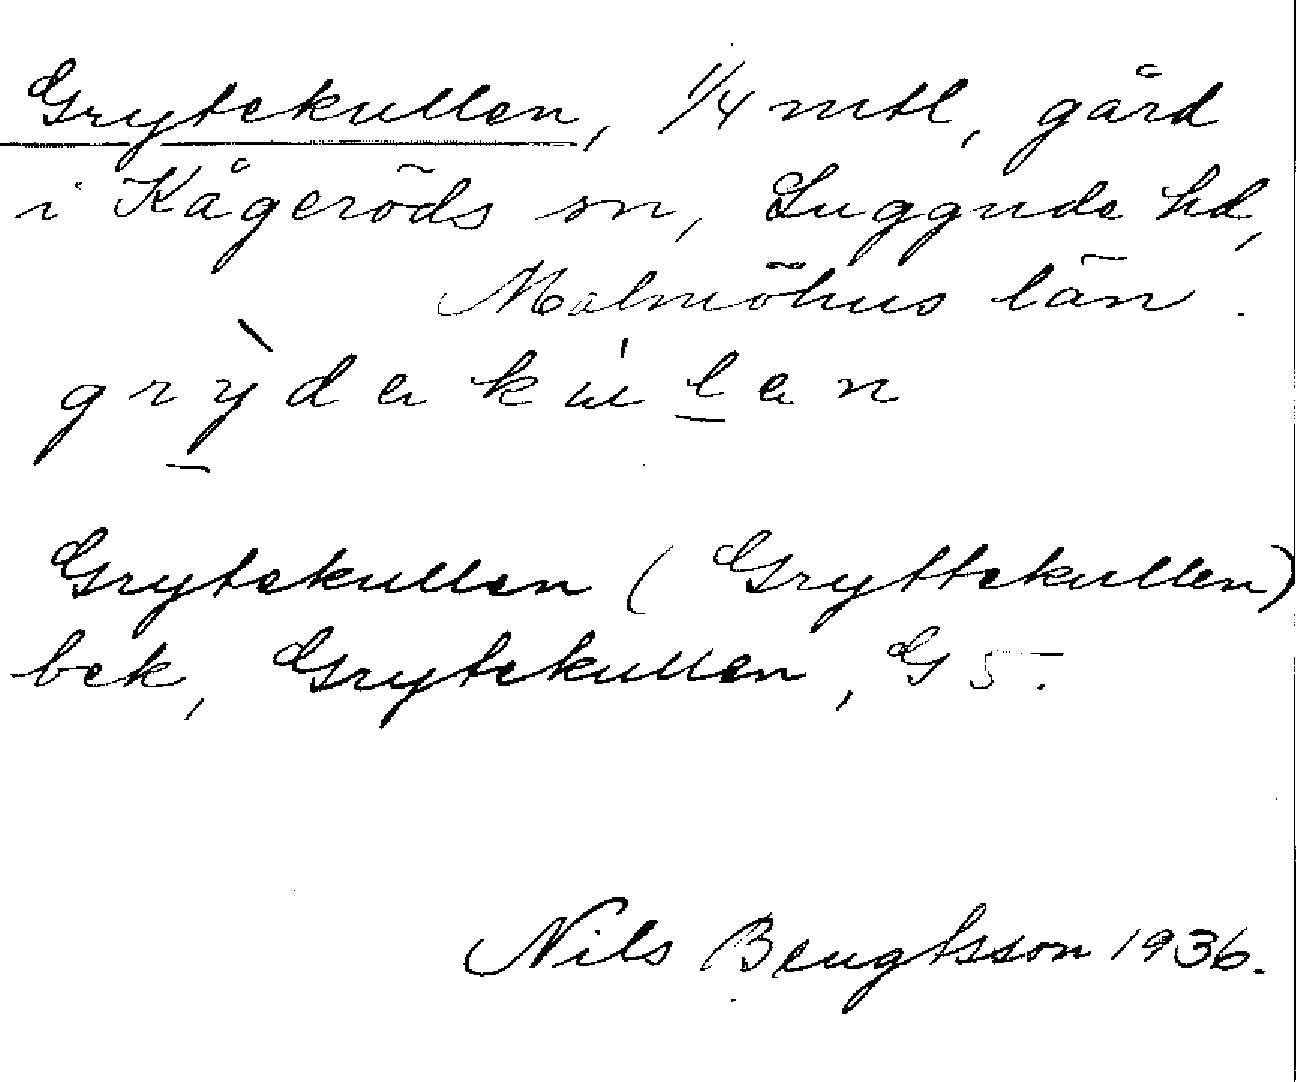 Grytekullen, 1/4 mtl, gård
i Kågeröds sn, Luggude hd,
Malmöhus län.
grỳdekúlen
Grytekullen (Gryttekullen)
bek, Grytekullen, G5.
Nils Bengtsson 1936.